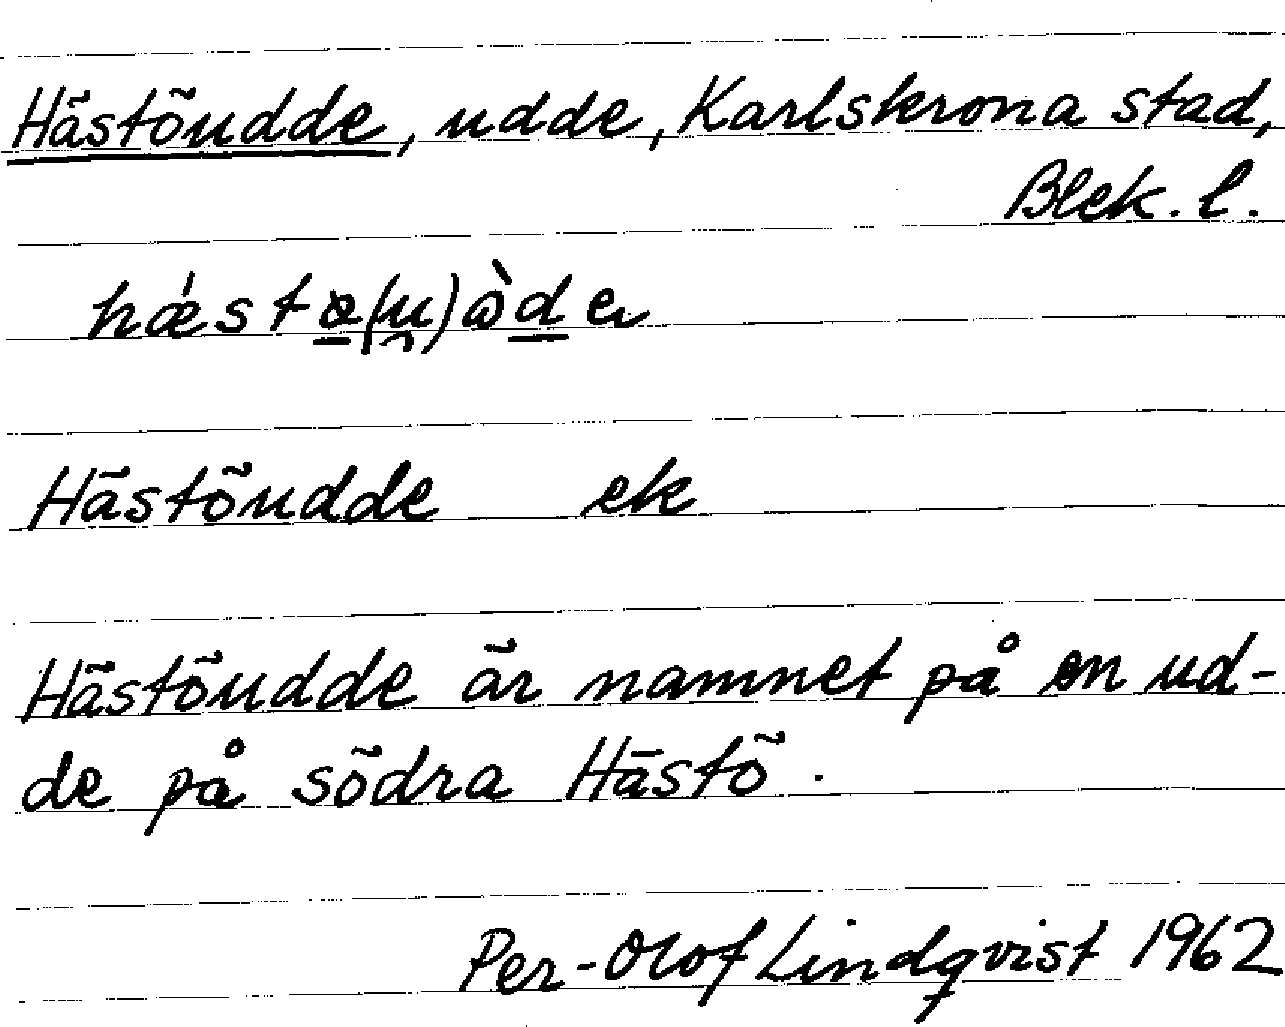 Hästöudde, udde, Karlskrona stad,
Blek. l.
Hästöudde ek
Hästöudde är namnet på en ud-
de på södra Hästö.
Per-Olof Lindqvist 1962